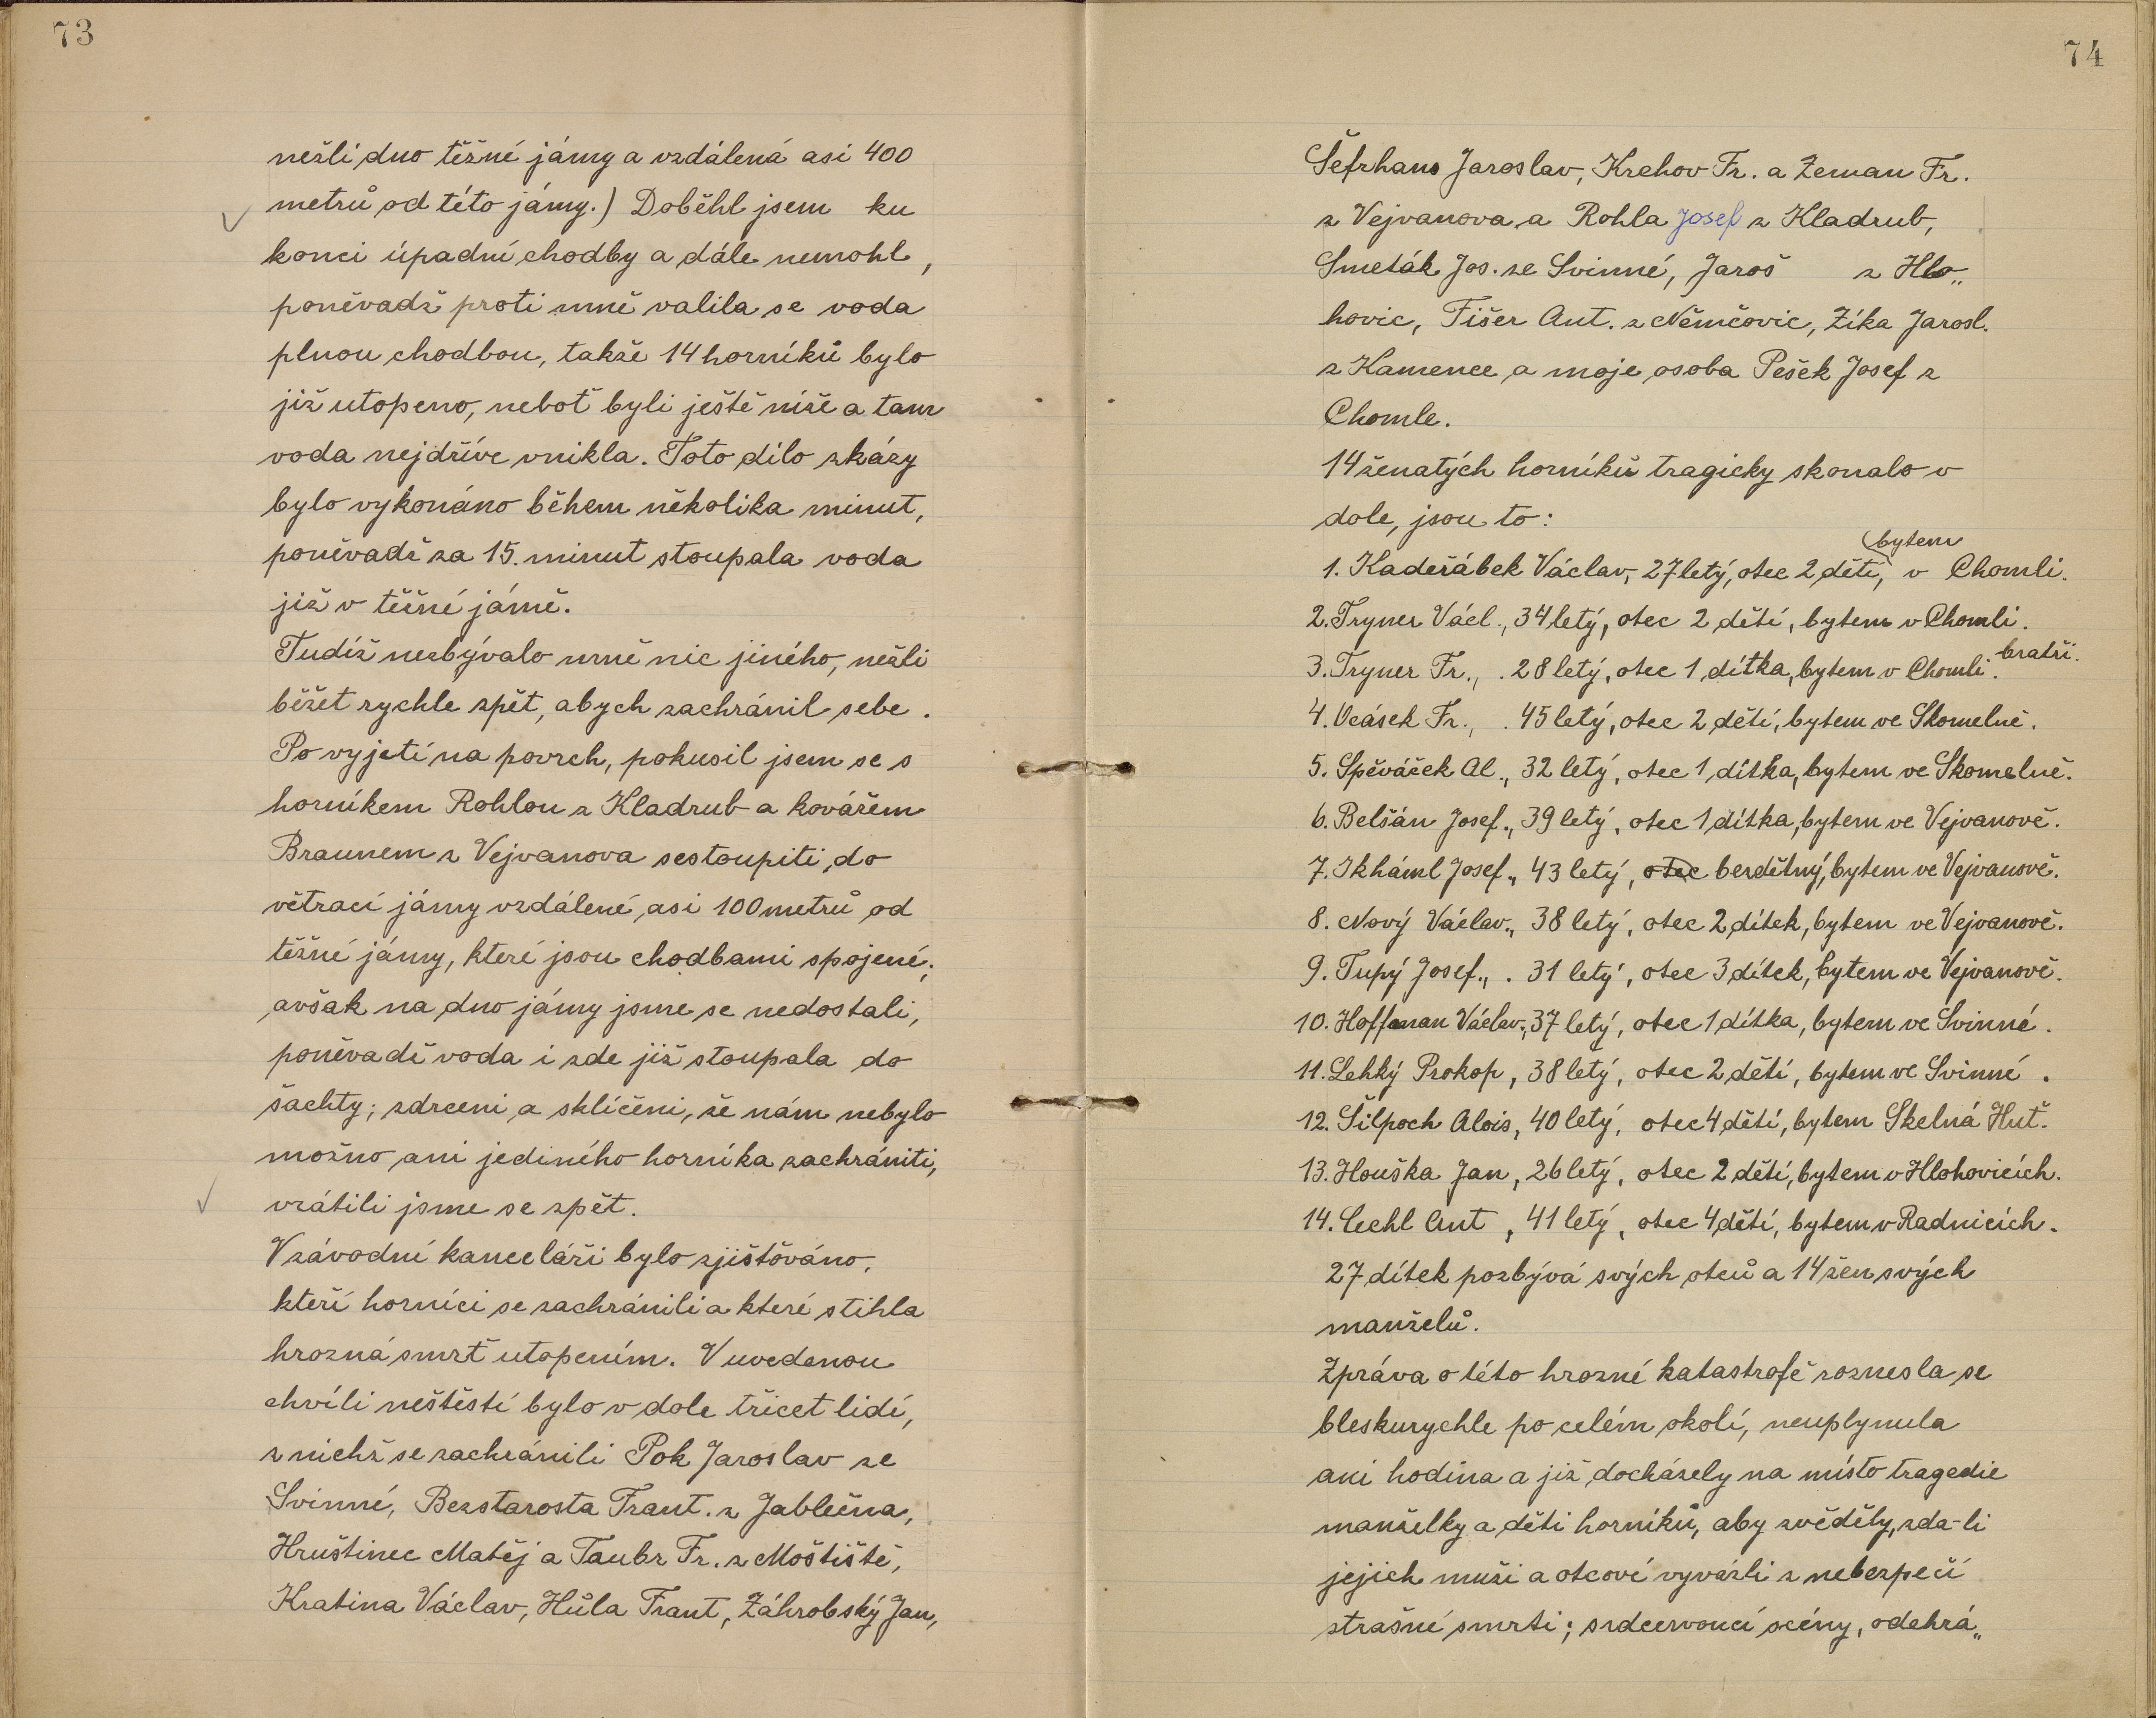 73
nežli dno těžné jámy a vzdálená asi 400
metrů od této jámy.) Doběhl jsem ku
konci úpadní chodby a dále nemohl,
poněvadž proti mně valila se voda
plnou chodbou, takže 14 horníků bylo
již utopeno, neboť byli ještě níže a tam
voda nejdříve vnikla. Toto dílo zkázy
bylo vykonáno během několika minut,
poněvadž za 15. minut stoupala voda
již v těžné jámě.
Tudíž nezbývalo mně nic jiného, nežli
běžet rychle zpět, abych zachránil sebe.
Po vyjetí na povrch, pokusil jsem se s
horníkem Rohlou z Kladrub a kovářem
Braunem z Vejvanova sestoupiti do
větrací jámy vzdálené asi 100 metrů od
těžné jámy, které jsou chodbami spojené;
avšak na dno jámy jsme se nedostali,
poněvadž voda i zde již stoupala do
šachty; zdrceni a sklíčeni, že nám nebylo
možno ani jediného horníka zachrániti,
vrátili jsme se zpět.
V závodní kanceláři bylo zjišťováno,
kteří horníci se zachránili a které stihla
hrozná smrť utopením. V uvedenou
chvíli neštěstí bylo v dole třicet lidí,
z nichž se zachránili Pok Jaroslav ze
Svinné, Bezstarosta Frant. z Jablečna,
Hruštinec Matěj a Taubr Fr. z Moštiště,
Kratina Václav, Hůla Frant, Záhrobský Jan,
74
Šefrhans Jaroslav, Krehov Fr. a Zeman Fr.
z Vejvanova a Rohla Josef z Kladrub,
Smeták Jos. ze Svinné, Jaroš z Hlo„
hovic, Fišer Ant. z Němčovic, Zíka Jarosl.
z Kamence a moje osoba Pešek Josef z
Chomle.
14 ženatých horníků tragicky skonalo v
dole, jsou to:
bytem
1. Kadeřábek Václav, 27letý, otec 2 dětí, v Chomli.
2. Tryner Václ., 34letý, otec 2 dětí, bytem v Chomli.
3. Tryner Fr., . 28letý, otec 1 dítka, bytem v Chomli. bratři.
4. Ocásek Fr., . 45letý, otec 2 dětí, bytem ve Skomelně.
5. Spěváček Al., 32letý, otec 1 dítka, bytem ve Skomelně.
6. Belšán Josef., 39letý, otec 1 dítka, bytem ve Vejvanově.
7. Ikháml Josef., 43letý, otec bezdětný, bytem ve Vejvanově.
8. Nový Václav., 38letý, otec 2 dítek, bytem ve Vejvanově.
9. Tupý Josef., . 31letý, otec 3 dítek, bytem ve Vejvanově.
10. Hoffman Václav., 37letý, otec 1 dítka, bytem ve Svinné.
11. Lehký Prokop, 38letý, otec 2 dětí, bytem ve Svinné.
12. Šilpoch Alois, 40letý, otec 4 dětí, bytem Skelná Huť.
13. Houška Jan, 26letý, otec 2 dětí, bytem v Hlohovicích.
14. Cechl Ant, 41letý, otec 4 dětí, bytem v Radnicích.
27 dítek pozbývá svých otců a 14 žen svých
manželů.
Zpráva o této hrozné katastrofě roznesla se
bleskurychle po celém okolí, neuplynula
ani hodina a již docházely na místo tragedie
manželky a děti horníků, aby zvěděly, zda-li
jejich muži a otcové vyvázli z nebezpečí
strašné smrti; srdcervoucí scény, odehrá„